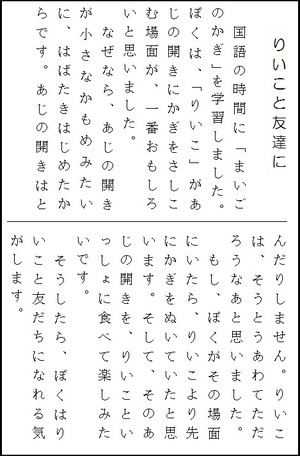 りいこと友達に
　国語の時間に「まいご
のかぎ」を学習しました。
ぼくは、「りいこ」があ
じの開きにかぎをさしこ
む場面が、一番おもしろ
いと思いました。
　なぜなら、あじの開き
が小さなかもめみたい
に、はばたきはじめたか
らです。あじの開きはと
んだりしません。りいこ
は、そうとうあわてただ
ろうなあと思いました。
　もし、ぼくがその場面
にいたら、りいこより先
にかぎをぬいていたと思
います。そして、そのあ
じの開きを、りいことい
っしょに食べて楽しみた
いです。
　そうしたら、ぼくはり
いこと友だちになれる気
がします。